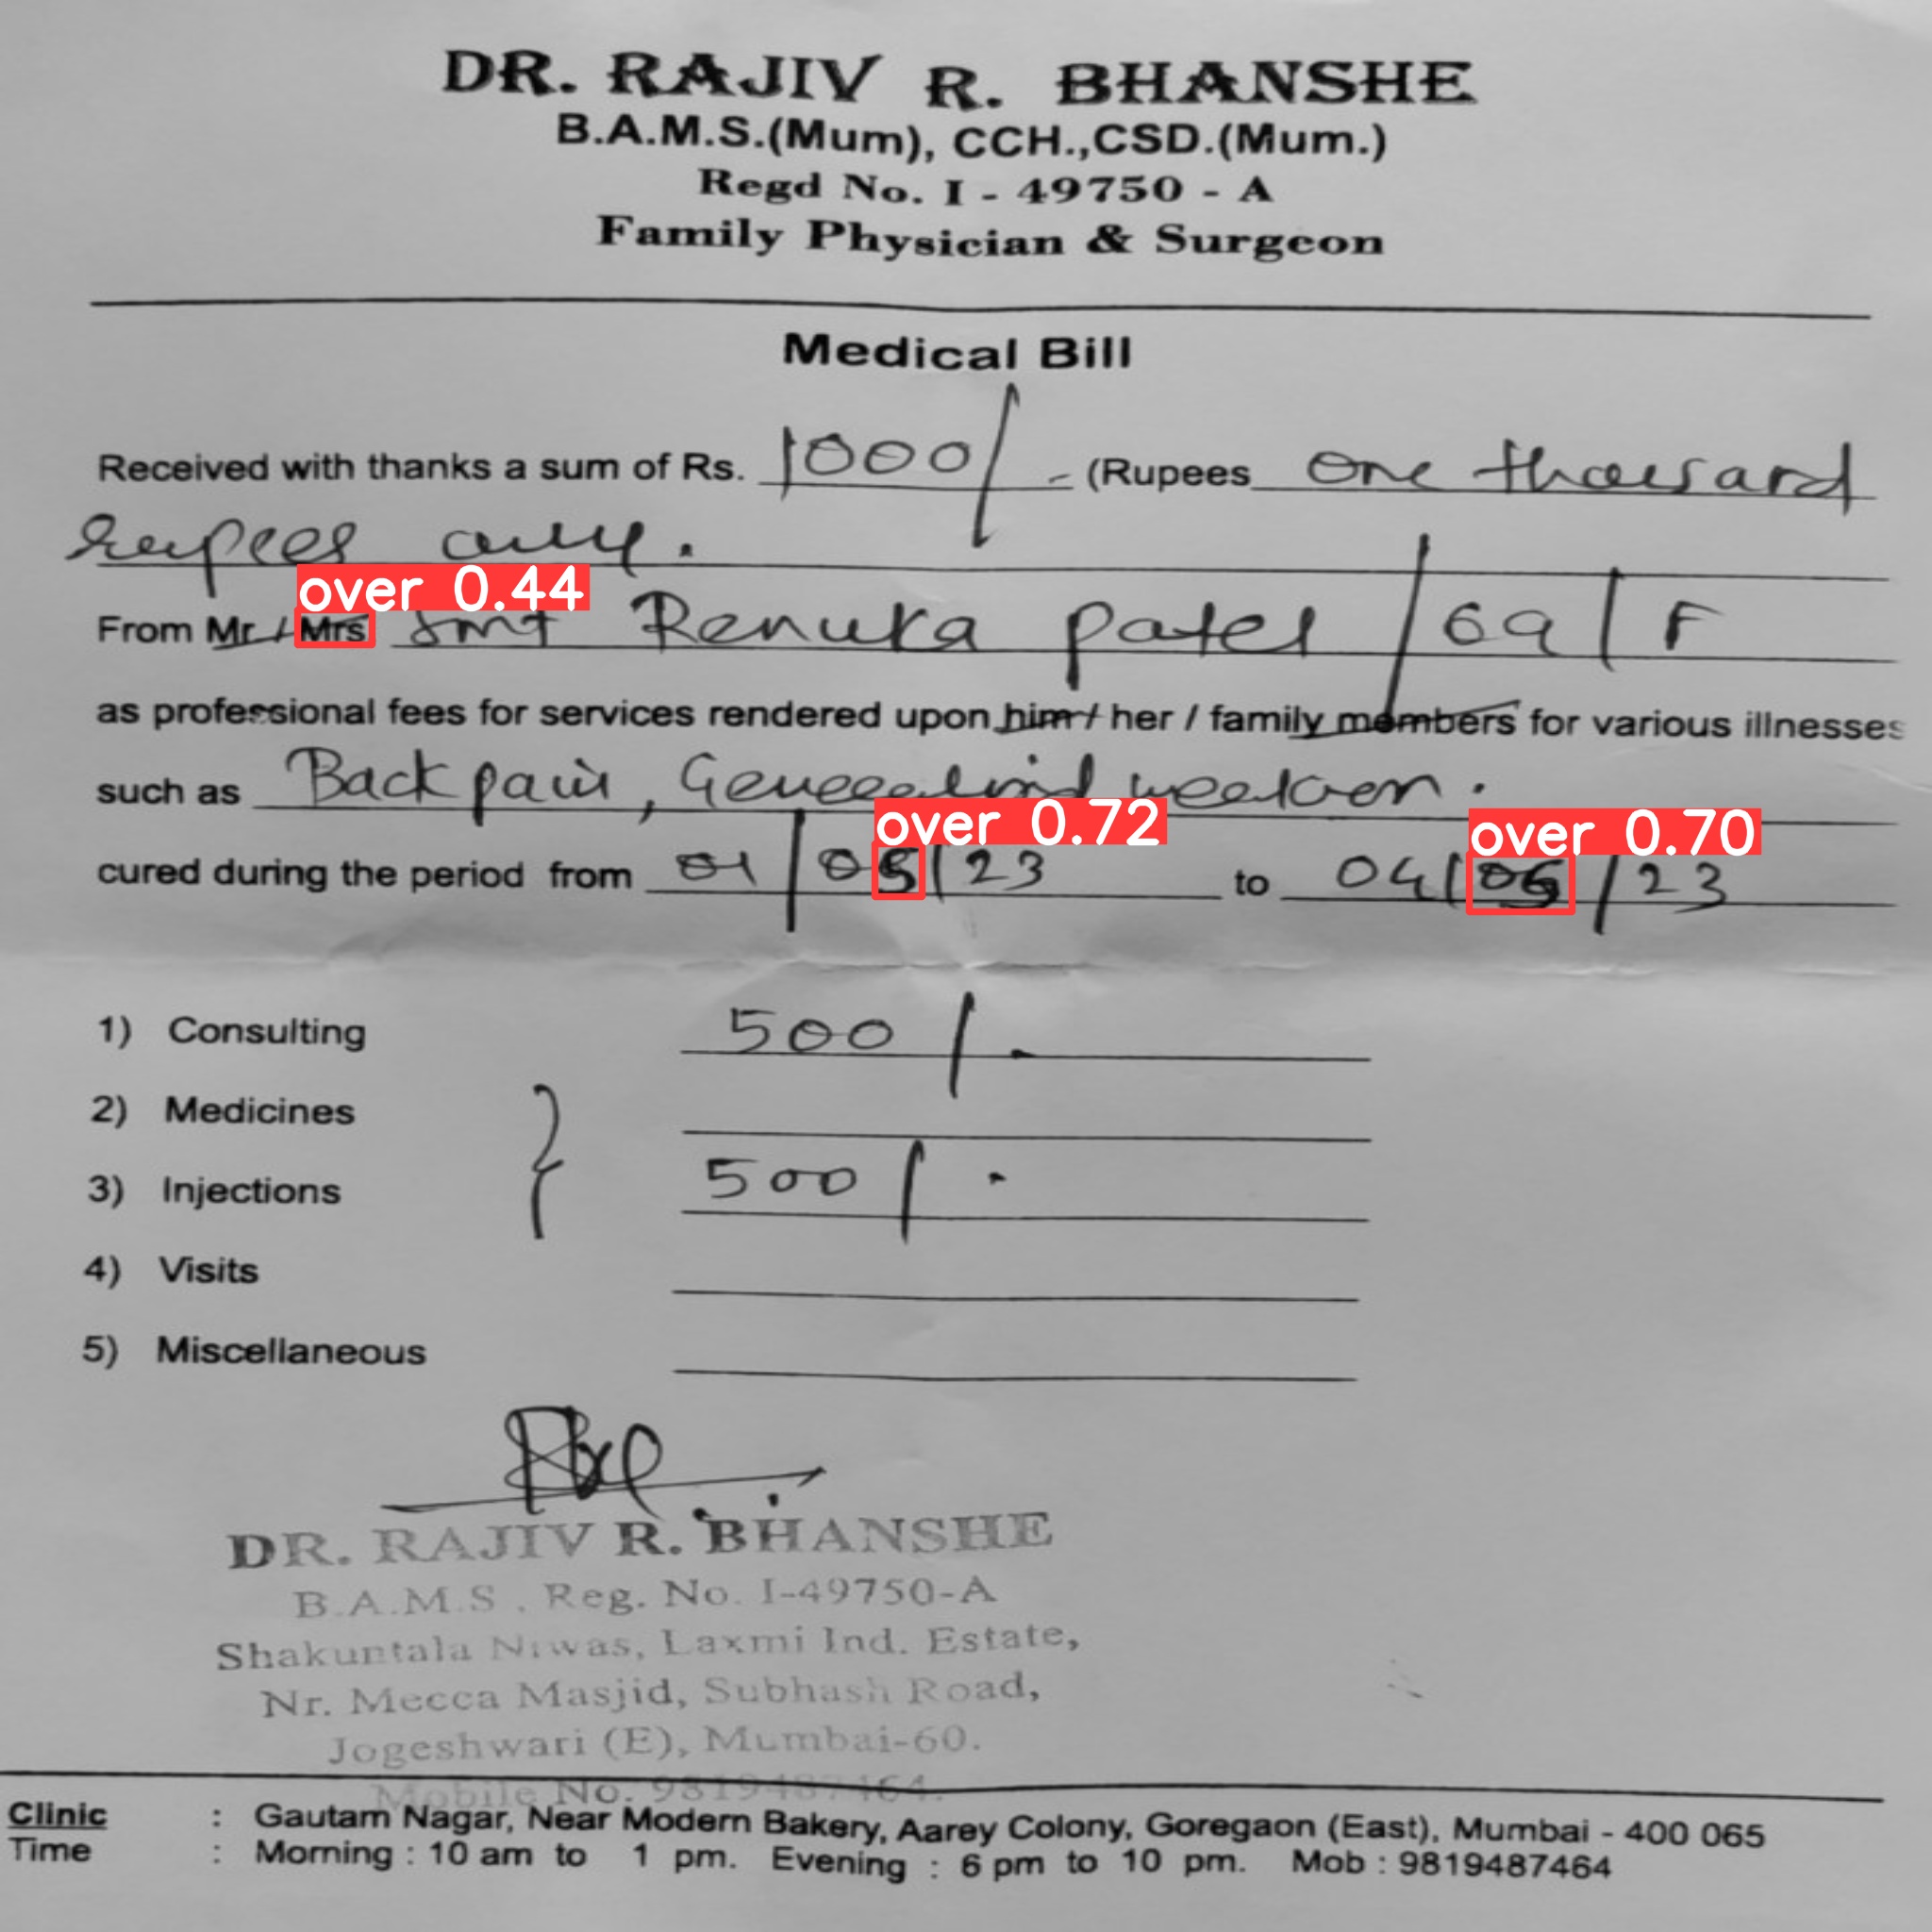 DR. RAJIV R. BHANSHE
B.A.M.S.(Mum), CCH.,CSD.(Mum.)
Regd No. I - 49750 - A
Family Physician & Surgeon
Medical Bill
Received with thanks a sum of Rs. 1000/- (Rupees one thousand
rupees only.
over 0.44
From Mr / Mrs Smt Renuka Patel / 69 / F
as professional fees for services rendered upon him / her / family members for various illnesses
such as Back pain, Generalind
over 0.72 over 0.70
cured during the period from 01/05/23 to 04/05/23
1) Consulting 500/-
2) Medicines
3) Injections } 500/-
4) Visits
5) Miscellaneous
DR. RAJIV R. BHANSHE
B.A.M.S. Reg. No. I-49750-A
Shakuntala Niwas, Laxmi Ind. Estate,
Nr. Mecca Masjid, Subhash Road,
Jogeshwari (E), Mumbai-60.
Mobile No. 9819487464.
Clinic : Gautam Nagar, Near Modern Bakery, Aarey Colony, Goregaon (East), Mumbai - 400 065
Time : Morning : 10 am to 1 pm. Evening : 6 pm to 10 pm. Mob : 9819487464